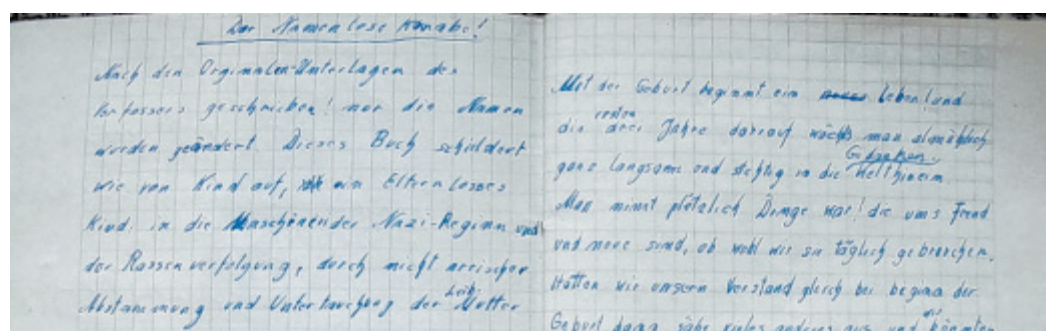 Der Namenlose Knabe!
Nach den Orginalen-Unterlagen des
Verfassers geschrieben! nur die Namen
wurden geändert. Dieses Buch schildert
wie von Kind auf, ein Elternloses
Kind. in die Maschienen der Nazi-Regimm und
der Rassenverfolgung, durch nicht areischer
Abstammung und Untertauchung der Leib Mutter
Mit der Geburt beginnt ein Leben! und
die ersten drei Jahre darauf wächs man almählich
ganz langsame und stehtig in die Gedanken
Man nimt plötzlich Dinge war! die uns fremd
und neue sind, ob wohl wir sie täglich gebrauchen.
Hätten wir unsern Verstand gleich bei beginn der
Geburt dann sähe vieles anderes aus und könnten